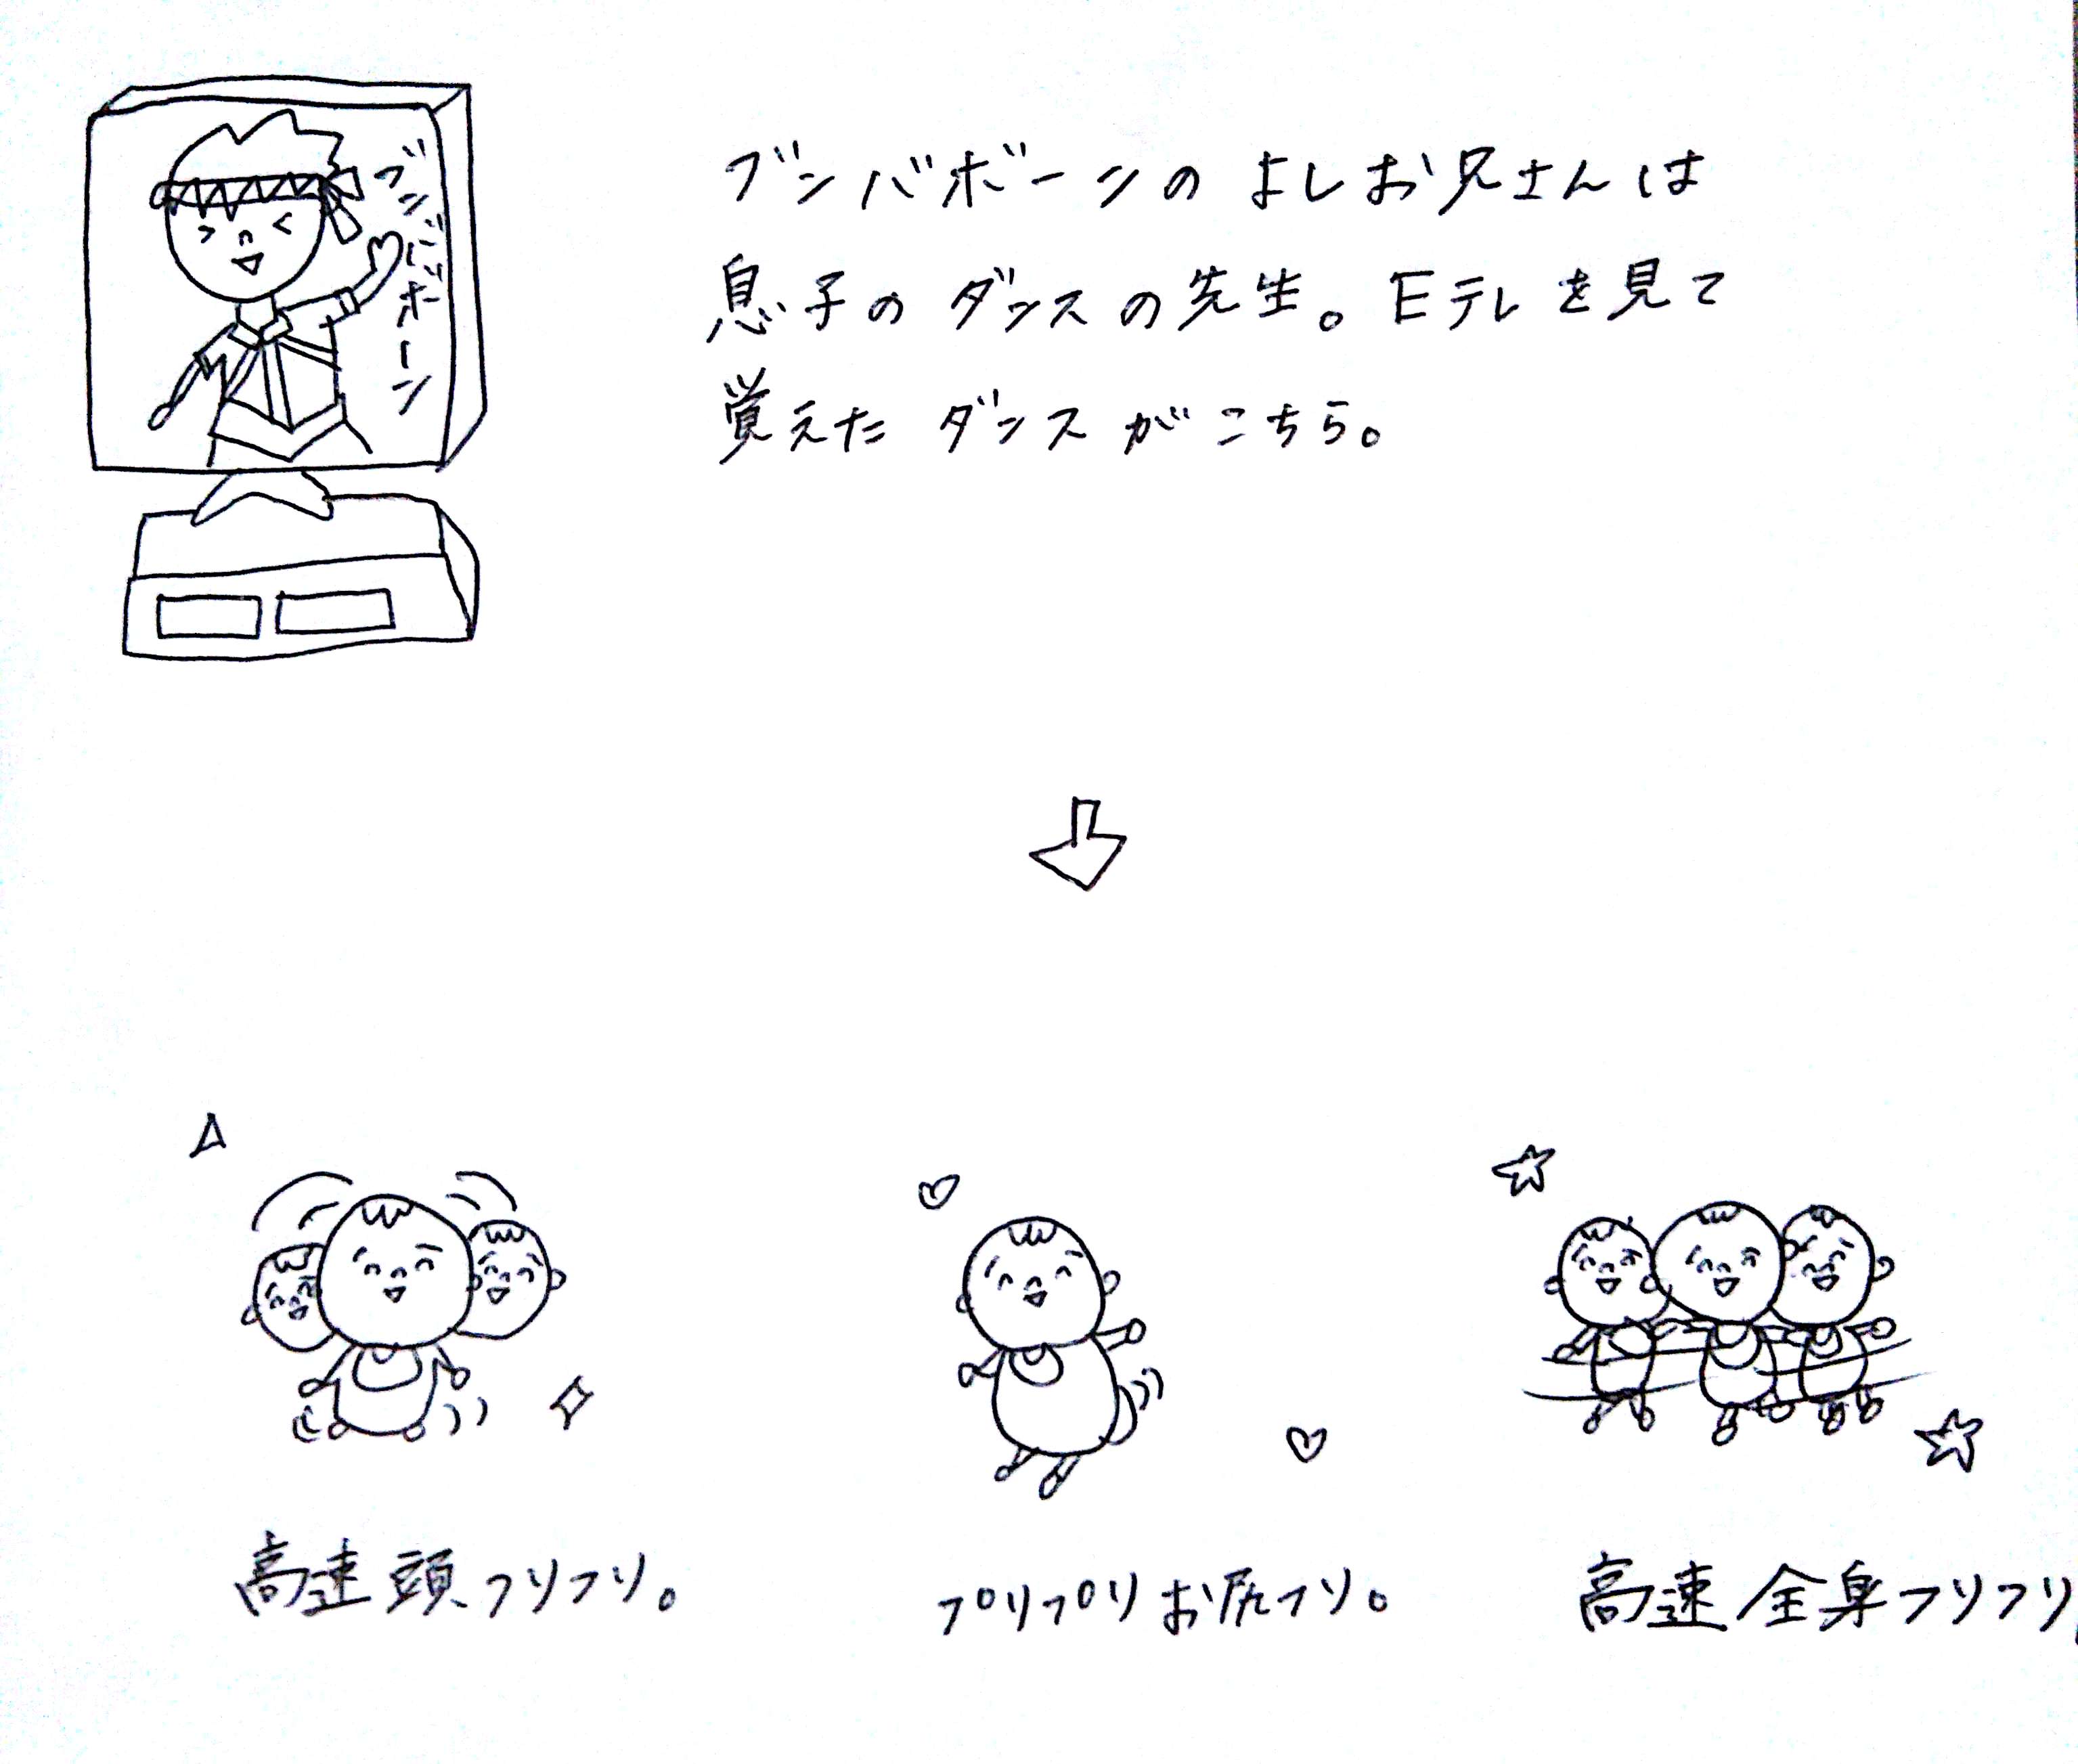 ブンバボーン
ブンバボーンのよしお兄さんは
息子のダンスの先生。Eテレを見て
覚えたダンスがこちら。
高速頭フリフリ。
プリプリお尻フリ。
高速全身フリフリ